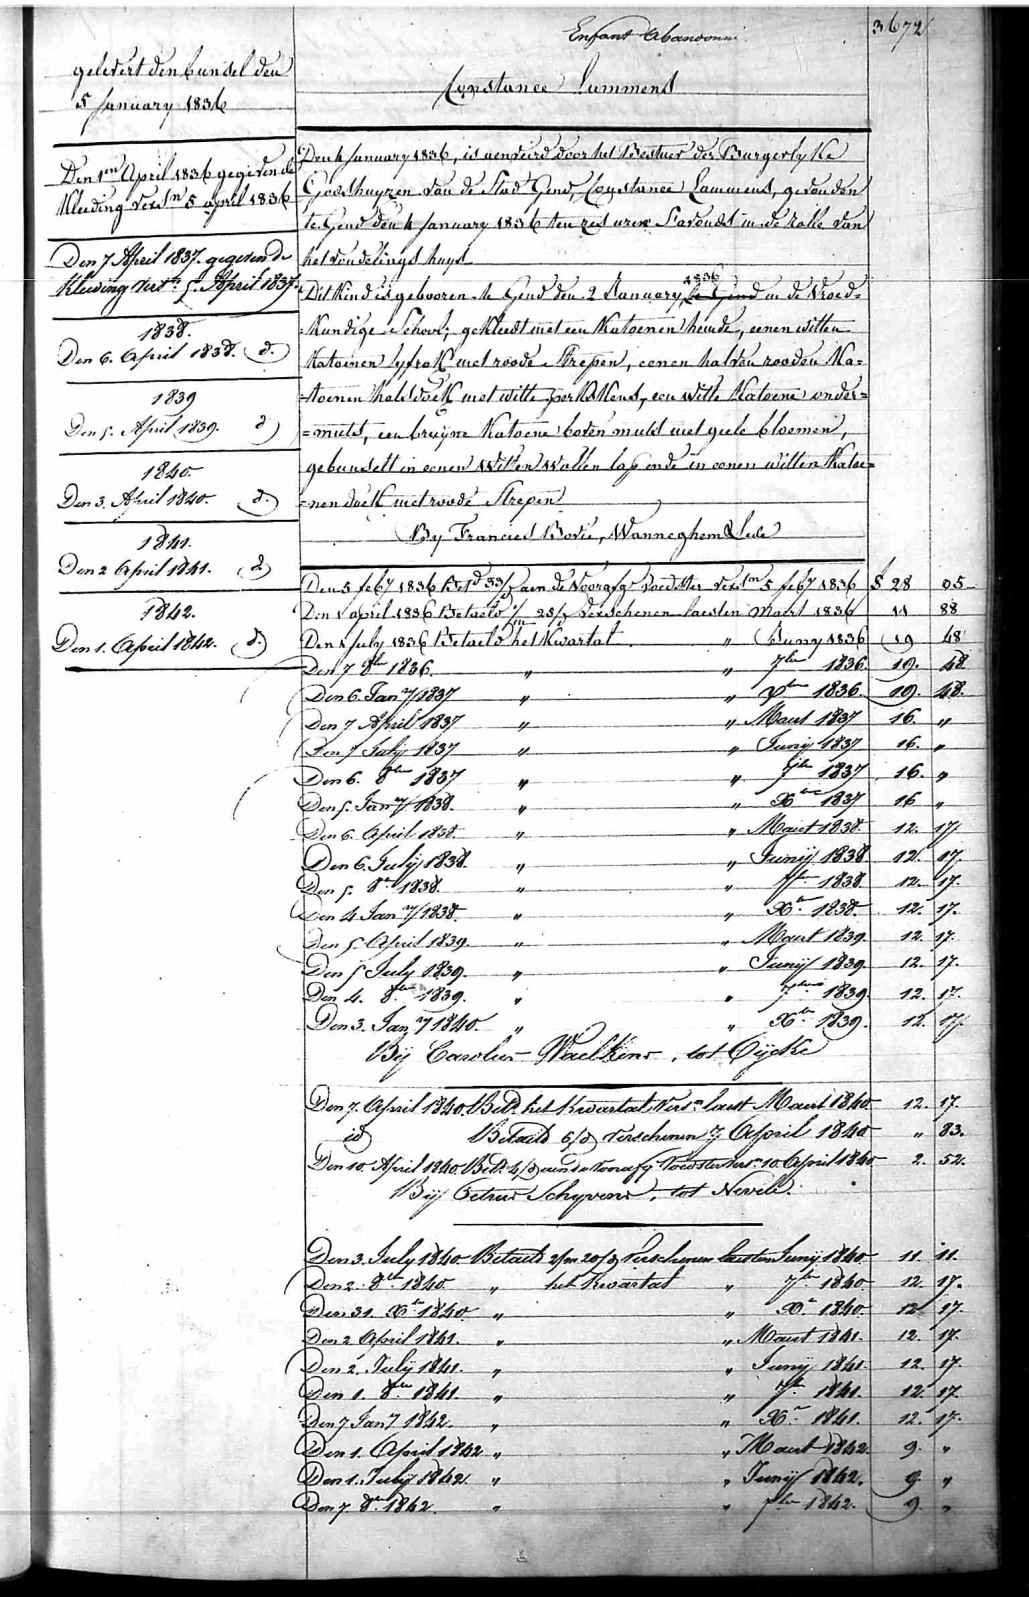 Enfant abandonné
3672
Constance Lammens
gelevert den bunsel den
5 January 1836
Den 1en April 1836 gegeven de
kleeding verstn 5 april 1836
Den 7 April 1837 gegeven de
kleeding verstn 5 April 1837
1838.
Den 6. April 1838. d.
1839
Den 5. April 1839. d
1840.
Den 3. April 1840. d.
1841.
Den 2 April 1841. d
1842.
Den 1. April 1842. d.
Den 4 January 1836, is aenveird door het Bestuer der Burgerlyke
Godshuyzen van de Stad Gend, Constance Lammens, gevonden
te Gend den 4 January 1836 ten zes uren S'avonds in de rolle van
het vondelings huys
Dit kind is gebooren te Gend den 2 January 1836 te Gend in de Vroed=
=kundige School; gekleedt met een katoenen hemde, eenen witten
katoenen lyfrok met roode Strepen, eenen halven rooden Ka=
=toenen halsdoek met witte perkskens, een witte Katoene onder=
=muts, een bruyne Katoene boven muts met geele bloemen,
gebunselt in eenen Witten Wollen lap ende in eenen witten Katoe=
=nen doek met roode Strepen
By Francies Bovie, Wanneghem Lede
Den 5 feby 1836 Betd 33/d aen de Voorafge Voedster verstn 5 feby 1836 f 28 05
Den 1 april 1836 Betaeld 1/m 25/d verschenen laesten Maert 1836 11 88
Den 1 July 1836 Betaeld het Kwartal " Juny 1836 19 48
Den 7 8ber 1836. " " 7ber 1836. 19. 48
Den 6. Jany 1837 " " Xber 1836. 19. 48.
Den 7 April 1837 " " Maert 1837 16. "
Den 7 July 1837 " " Junij 1837 16. "
Den 6. 8ber 1837 " " 7ber 1837 16. "
Den 5. Jany 1838. " " Xber 1837 16 "
Den 6. April 1838. " " Maert 1838. 12. 17.
Den 6. July 1838. " " Junij 1838 12. 17.
Den 5. 8br 1838. " " 7ber 1838. 12. 17.
Den 4 Jany 1838. " " Xbr 1838. 12. 17.
Den 5 April 1839. " " Maert 1839. 12. 17.
Den 5 July 1839. " " Junij 1839 12. 17.
Den 4. 8ber 1839. " " 7ber 1839. 12. 17.
Den 3. Jany 1840. " " Xber 1839. 12. 17.
Bij Carolus Waelkens, tot Eijcke
Den 7. April 1840. Betd. het Kwartal Versn laest Maert 1840. 12. 17.
id Betaeld 6/d verschenen 7 April 1840 " 83.
Den 10. April 1840. Betd. 4/d aen de Voorafg Voedster versn 10 April 1840 2. 52.
Bij Petrus Schyvens, tot Nevele.
Den 3. July 1840. Betaeld 2/m 20/d verschenen laesten Junij 1840. 11. 11.
Den 2. 8br 1840. " het Kwartal " 7br 1840. 12 17.
Den 31. Xbr 1840. " " Xr 1840. 12 17.
Den 2 April 1841. " " Maert 1841. 12. 17.
Den 2. July 1841. " " Junij 1841. 12. 17.
Den 1. 8ber 1841. " " 7br 1841. 12. 17.
Den 7 Jany 1842. " " Xr 1841. 12. 17.
Den 1. April 1842 " " Maert 1842 9. "
Den 1. July 1842. " " Junij 1842. 9. "
Den 7. 8br 1842. " " 7ber 1842. 9. "